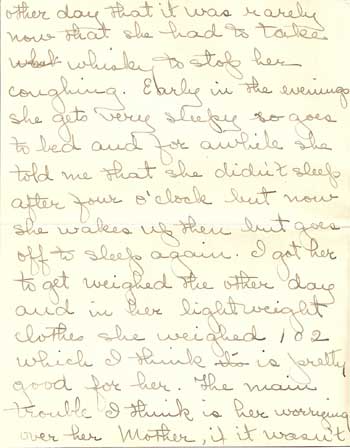 other day that it was rarely
now that she had to take
what whisky to stop her
coughing. Early in the evenings
she gets very sleepy so goes
to bed and for awhile she
told me that she didn't sleep
after four o'clock but now
she wakes up then but goes
off to sleep again. I got her
to get weighed the other day
and in her lightweight
clothes she weighed 102
which I think is is pretty
good for her. The main
trouble I think is her worrying
over her Mother, if it wasn't